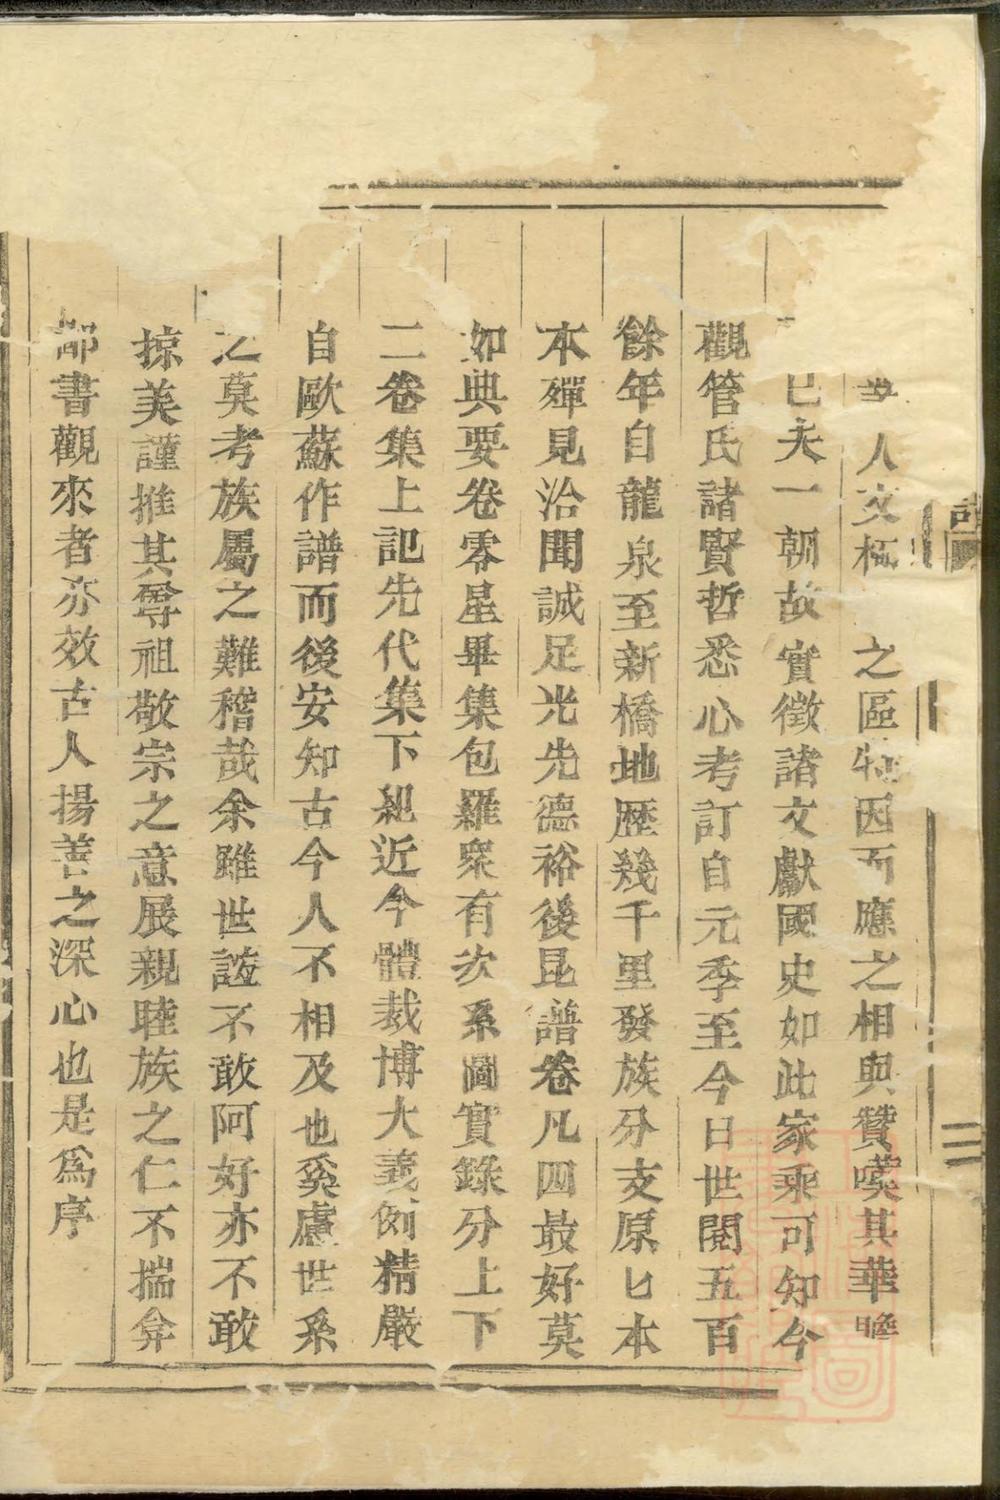 人文極 之區特因而應之相與贊嘆其華瞻
已夫一朝故實徵諸文獻國史如此家乘可知今
觀管氏諸賢哲悉心考訂自元季至今日世閱五百
餘年自龍泉至新橋地歷幾千里發族分支原匕本
本殫見洽聞誠足光先德裕後昆譜卷凡四最好莫
如典要卷零星畢集包羅衆有次系圖實錄分上下
二卷集上記先代集下紀近今體裁博大義例精嚴
自歐蘇作譜而後安知古今人不相及也奚慮世系
之莫考族屬之難稽哉余雖世誼不敢阿好亦不敢
掠美謹推其尊祖敬宗之意展親睦族之仁不揣弇
鄙書觀來者亦效古人揚善之深心也是爲序